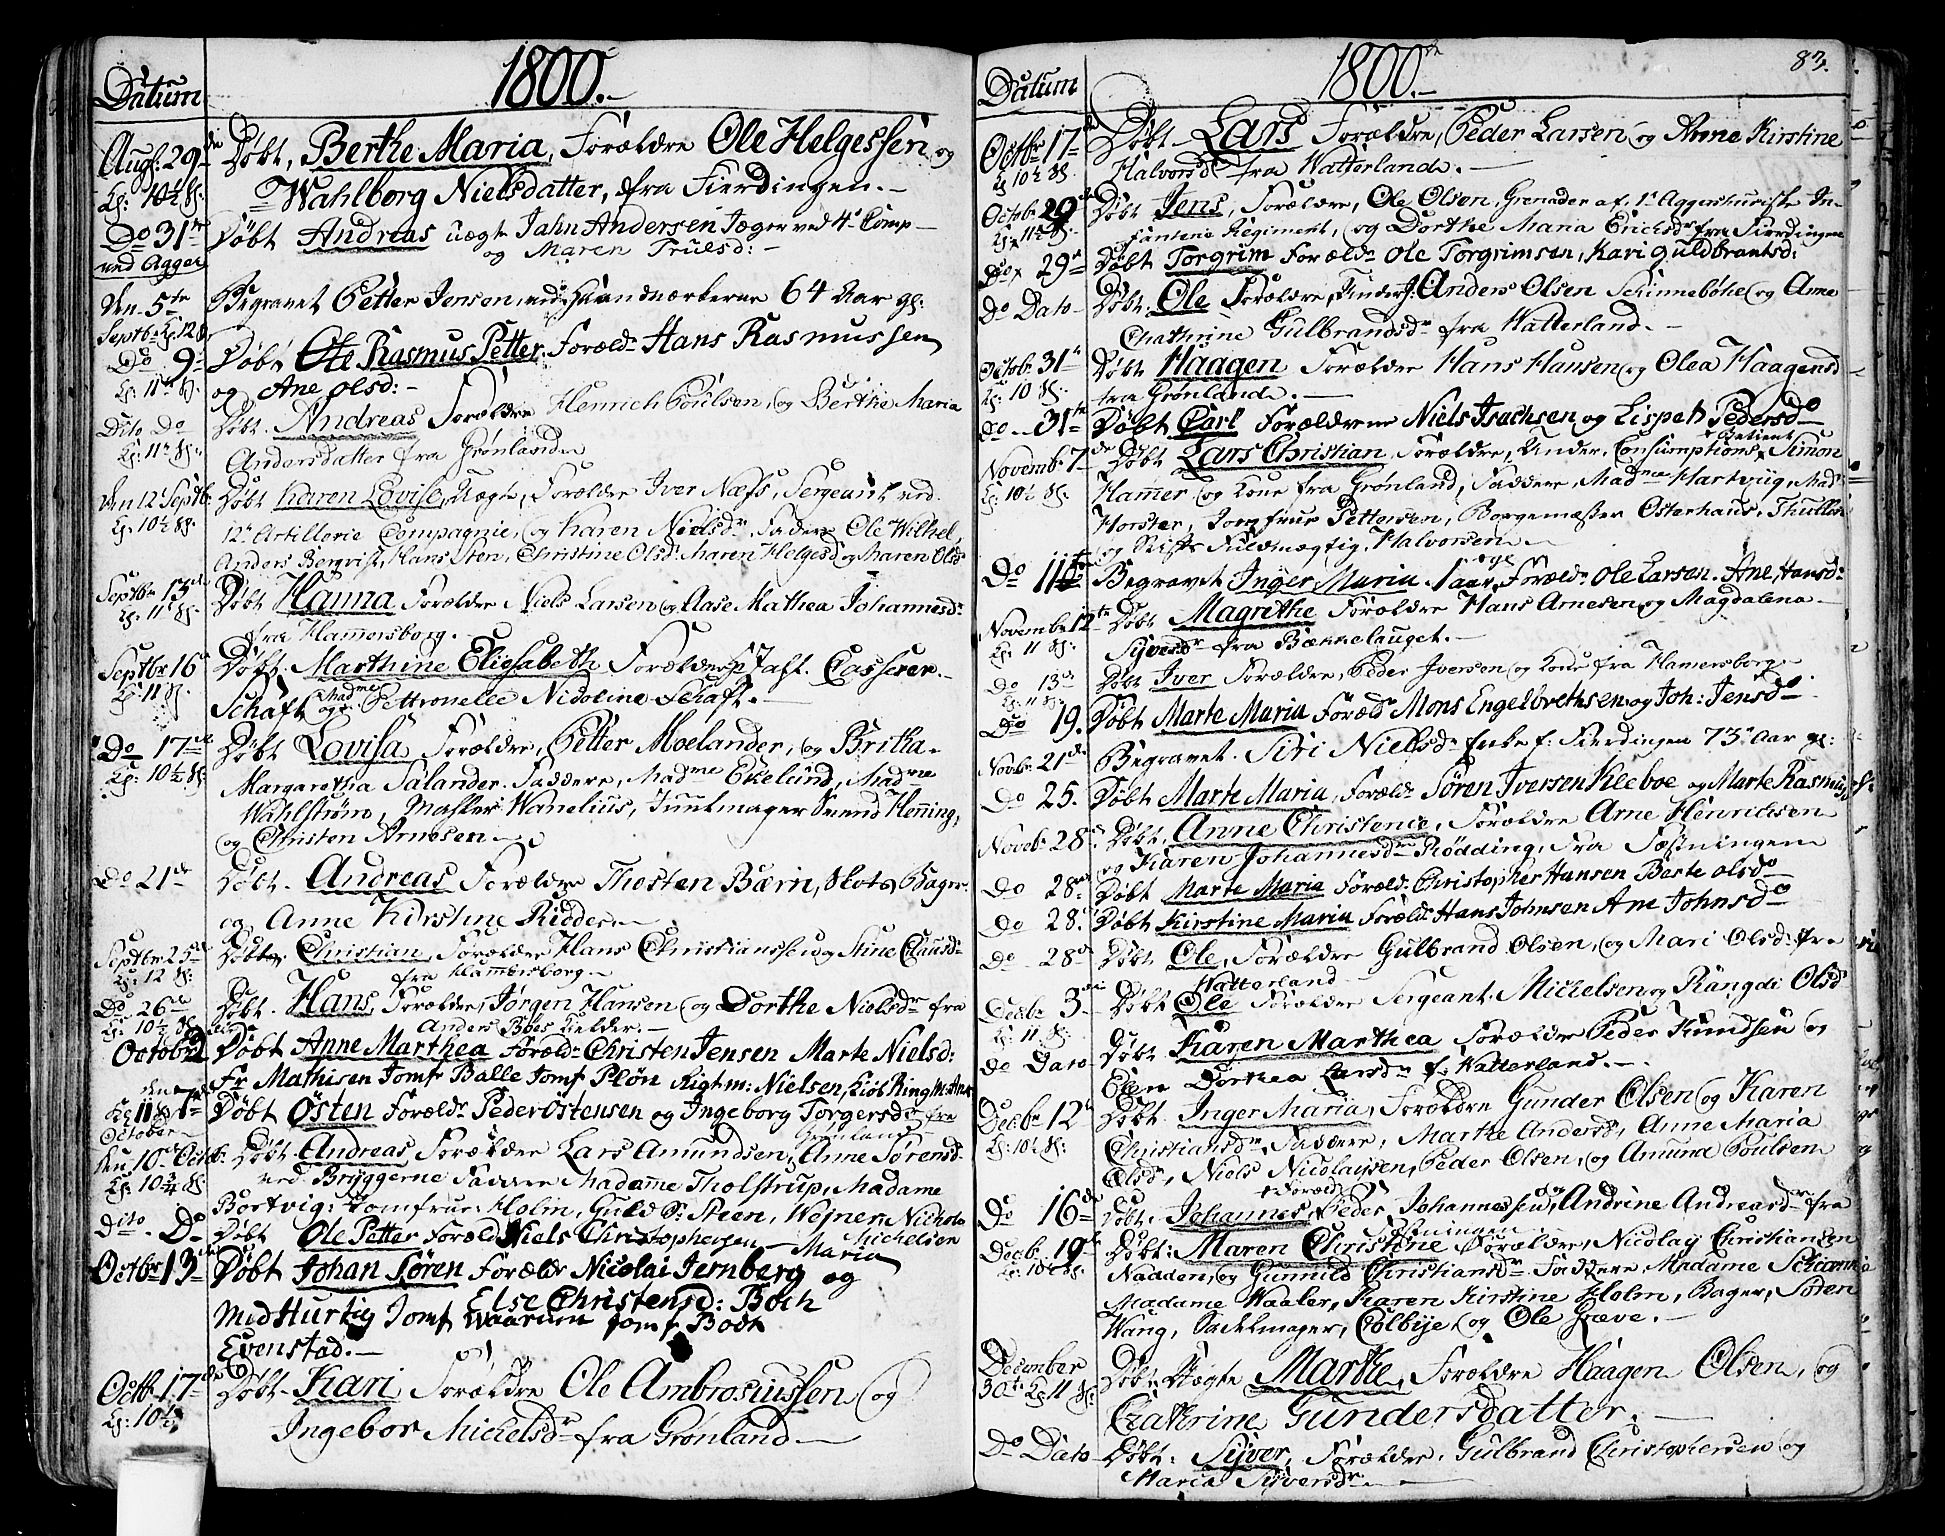 Datum
1800.
Augs: 29de Døbt, Berthe Maria, Forældre Ole Helgessen og
Kl: 10½ Sl: Wahlborg Nielsdatter, fra Fierdingen.
Do 31te Døbt Andreas uægte Jahn Andersen Jæger ved 4de Comp
og Maren Truels d:
ved Agger
Den 5te Begravet Petter Jensen, ved Haandværkerne 64 Aar gl:
Septbr Kl. 12
Do 9de Døbt Ole Rasmus Petter Foræld: Hans Rasmussen
Kl: 11 Sl: og Ane Olsd:
Dito Do Døbt. Andreas Forældre Henrich Poulsen, og Berthe Maria
Kl: 11 Sl: Andersdatter fra Grønland
Den 12 Septbr Døbt Karen Lovise, Uægte, Forældre Iver Næss, Sergeant ved
Kl: 10½ Sl: 12te Artillerie Compagnie, og Karen Nielsdr. Faddere Ole Wilhel,
Anders Bergvist, Hans Sten, Christine Olsd: Maren Helgesd og Maren Olsd
Septbr 15de Døbt Hanna Forældre Niels Larsen og Aase Mathea Johannesd:
Kl: 11 Sl: fra Hammersborg.
Septbr 16de Døbt. Marthine Eliesabeth Forældre Casserer
Kl: 11 Sl: Schaft og Madme Pettronelle Nicoline Schaft.
Do 17de Døbt Lovisa Forældre, Petter Moelander, og Britha
Kl: 10½ Sl: Margaretha Salander. Faddere, Madme Ekelund, Madme
Wahlstrøm, Mahler Wanelius, Svend Henning,
og Christen Arnesen
Do 21de Døbt. Andreas Forældre Thosten Bærn, Bager
og Anne Kirstine Ridder
Septbr 25de Døbt Christian, Forældre Hans Christiansen og Stine Clausd:
Kl: 12 Sl: fra Hammersborg
Do 26de Døbt. Hans, Forældre, Jørgen Hansen og Dorthe Nielsdr fra
Kl: 10½ Sl: Anders Kielder.
October Døbt Anne Marthea Foræld: Christen Jensen Marte Nielsd:
Fr Mathisen Jomf Balle Jomf Pløn Rigtm: Nielsen,
Kl 11 Døbt Østen Foræld: Peder Østensen og Ingeborg Torgersdr fra
October Grønland
Den 10de Octbr: Døbt. Andreas Forældre Lars Amundsen, Anne Sørensd.
Kl: 10¾ Sl: ved Bryggerne Faddere Madame Tholstrup, Madame
Bortvig, Jomfrue Holm, Guld Sr: Steen, Wejner, Nicholai
Dito. Do Døbt Ole Petter Foræld Niels Christophersen Michelsen
Maria
Octbr 13de Døbt Johan Søren Forældr Nicolai Jernberg og
Else Christensd: Boch
Mad Hurtig Jomf Waarum Jomf Bodt
Evenstad.
Octbr 17de Døbt. Kari Forældre Ole Ambrosiussen og
Kl: 10½ Ingebor Michelsdr fra Grønland
Datum
1800.
83.
Octbr 17de Døbt Lars Forældre, Peder Larsen og Anne Kirstine
Kl 10½ Sl. Halvorsdr fra Watterlande.
Octobr 29de Døbt Jens, Forældre, Ole Olsen, Grenader af 1te Aggershuusiske In-
Kl. 11½ Sl. fanterie Regiment, og Dorthe Maria Ericksdr fra Fierdingen
Do 29de Døbt Torgrim Foræld: Ole Torgrimsen, Kari Guldbrantsd:
Do Dato Døbt: Ole Forældre, Anders Olsen og Anne
Chathrine Gulbrandsdr fra Watterland.
Octobr 31te Døbt Haagen Forældre Hans Hansen og Olea Haagensd
Kl: 10 Sl: fra Grønlande.
Do 31te Døbt Carl Forældrene Niels Isachsen og Lispet Pedersdr
Novembr 7de Døbt Lars Christian Forældre, Under Consumptions Betient Simon
Kl: 10½ Sl: Hamer og Kone fra Grønland, Faddere, Madme Hartvig, Mad:
Horster, Jomfrue Pettersen, Borgemæster Osterhaus,
og Stifts Fuldmægtig Halvorsen
Do 11te Begravet Inger Maria 1 aar Foræld: Ole Larsen. Ane Hansd:
Novembr 12te Døbt Magrethe Forældre Hans Arnesen og Magdalena
Kl: 11 Sl: Syversdr fra Bækkelauget.
Do 13de Døbt Iver Forældre, Peder Iversen og Kone fra Hamersborg
Kl. 11 Sl.
Do 19. Døbt Marte Maria Foræld Mons Engelbrethsen og Joh: Jensdr.
Novbr 21de Begravet. Siri Nielsdr Enke f: Fierdingen 73 Aar gl:
Do 25. Døbt Marte Maria, Foræld: Søren Iversen Kleboe og Marte Rasmus
Novebr 28de Døbt. Anne Christence, Forældre Arne Henrichsen
og Karen Johannesdr Rødding, fra Fæstningen
Do 28de Døbt Marte Maria Foræld: Christopher Hansen Berte Olsdr
Do 28. Døbt Kirstine Maria Foræld Hans Johnsen Ane Johnsdr
Do 28de Døbt Ole, Forældre Gulbrand Olsen, og Mari Olsd: fra
Watterland
Decbr 3die Døbt Ole Forældre Sergeant Michelsen og Rangdi Olsd
Kl: 11 Sl:
Do Dato Døbt Karen Marthea Forældre Peder Knudsen og
Elen Dorthea Larsdr f: Watterland.
Decbr 12te Døbt. Inger Maria, Forældre Gunder Olsen og Karen
Kl: 10½ Sl: Christiansdr, Faddere, Marthe Andersdr, Anne Maria
Olsdr, Niels Nicolaysen, Peder Olsen, og Amund Poulsen
Do 16de Døbt. Johannes, Foræld Peder Johannessen, og Andrine Andreasdr fra
Fæstningen
Decbr 19de Døbt: Maren Christine Forældre, Nicolay Christiansen
Kl: 10½ Sl. Nadden, og Gunnild Christiansdr. Faddere, Madame
Madame Waaler, Karen Kirstine Holm, Bager, Søren
Wang, Sadelmager, Colbye, og Ole Græve.
December Døbt. Uægte Marthe, Forældre Haagen Olsen, og
30te Kl 11 Sl: Cathrine Gundersdatter.
Do Dato Døbt: Syver, Forældre, Gulbrand Christophersen og
Maria Syversdr.